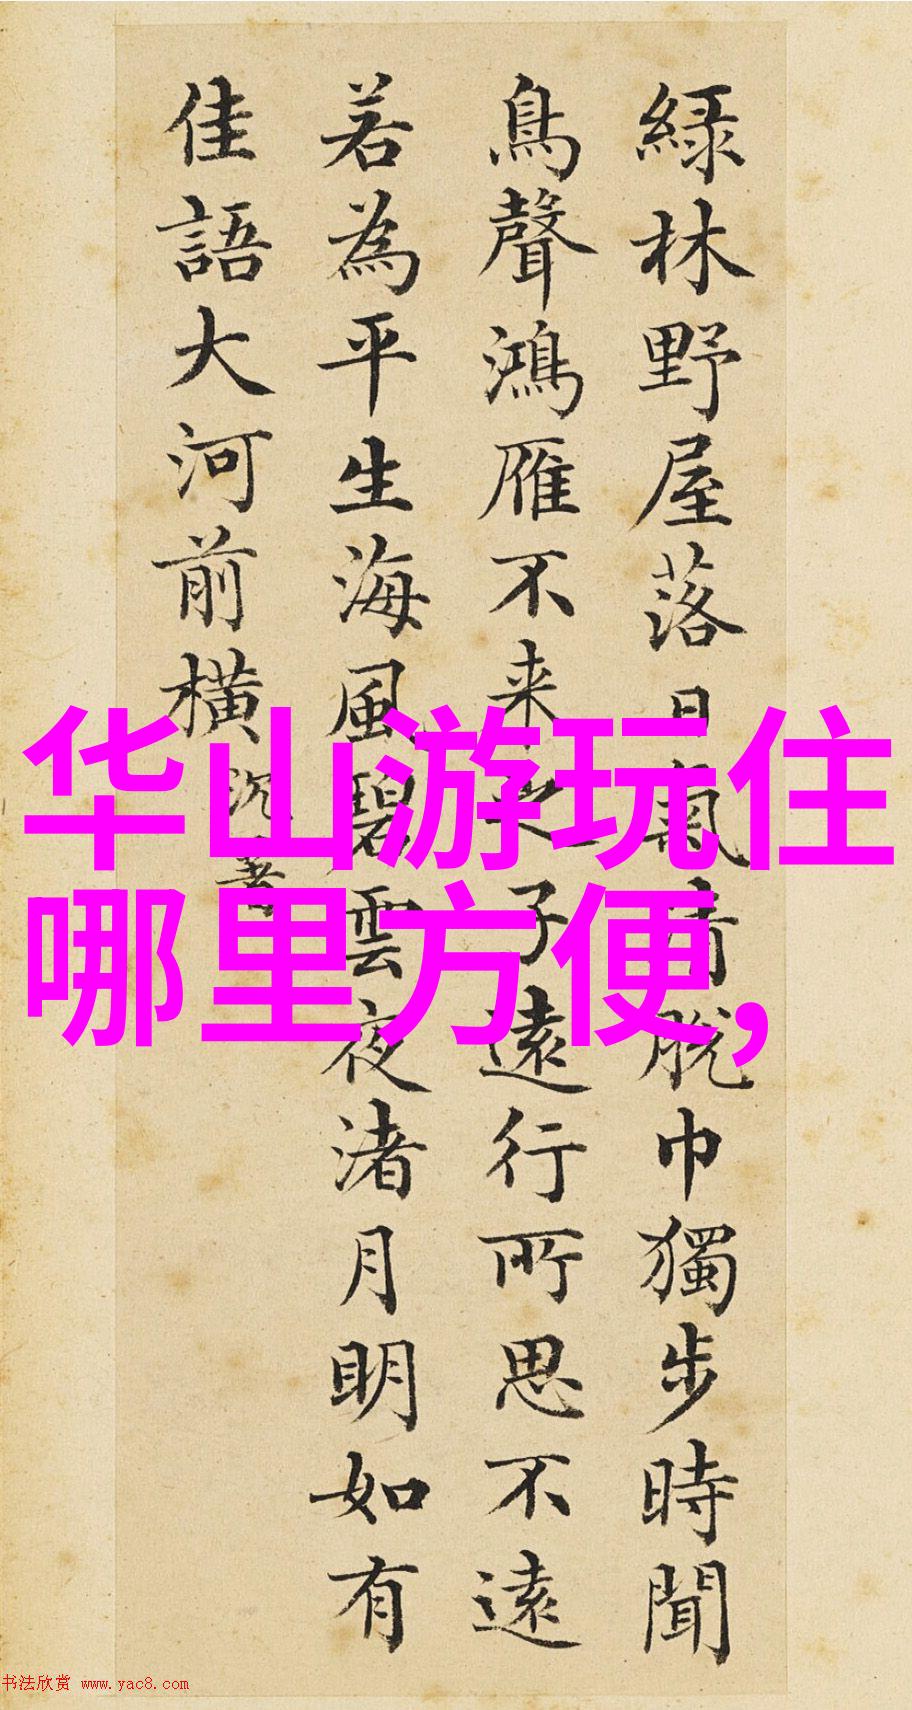 綠林野屋落日氣清脫巾獨步時聞
鳥聲鴻雁不来之子遠行所思不遠
若為平生海風碧雲夜渚月明如有
佳語大河前橫
华山游玩住
哪里方便,
书法欣赏 www.yac8.com